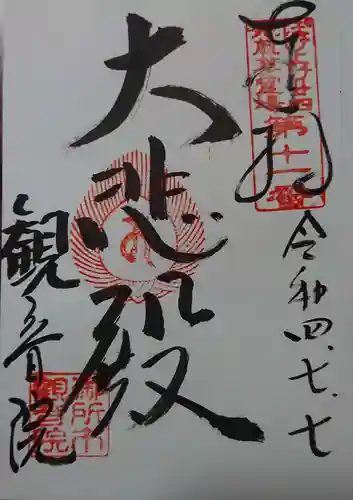 奉拝
第十一番
令和四.七.七
大悲殿
観音院
御所市
観音院